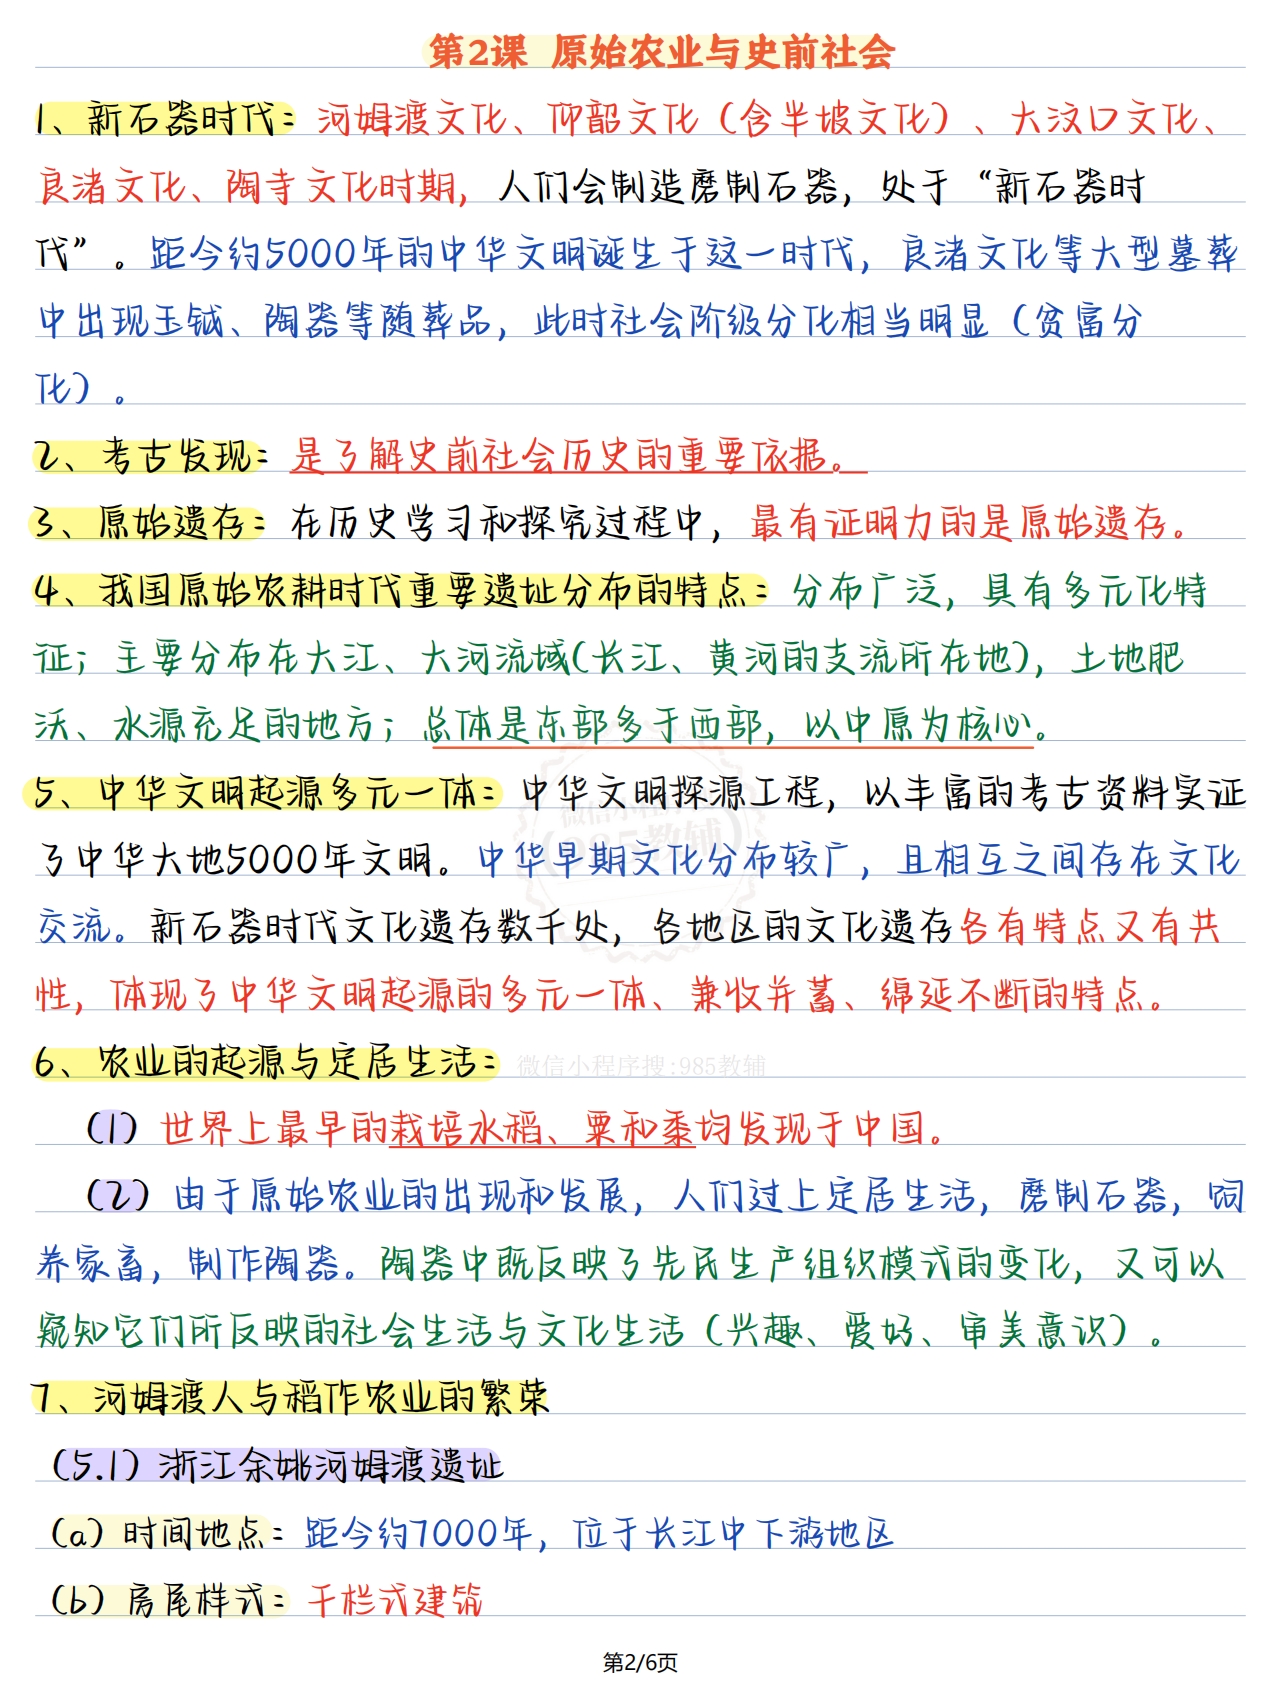 第2课 原始农业与史前社会
1、新石器时代：河姆渡文化、仰韶文化（含半坡文化）、大汶口文化、
良渚文化、陶寺文化时期，人们会制造磨制石器，处于“新石器时
代”。距今约5000年的中华文明诞生于这一时代，良渚文化等大型墓葬
中出现玉钺、陶器等随葬品，此时社会阶级分化相当明显（贫富分
化）。
2、考古发现：是了解史前社会历史的重要依据。
3、原始遗存：在历史学习和探究过程中，最有证明力的是原始遗存。
4、我国原始农耕时代重要遗址分布的特点：分布广泛，具有多元化特
征；主要分布在大江、大河流域(长江、黄河的支流所在地)，土地肥
沃、水源充足的地方；总体是东部多于西部，以中原为核心。
5、中华文明起源多元一体：中华文明探源工程，以丰富的考古资料实证
了中华大地5000年文明。中华早期文化分布较广，且相互之间存在文化
交流。新石器时代文化遗存数千处，各地区的文化遗存各有特点又有共
性，体现了中华文明起源的多元一体、兼收并蓄、绵延不断的特点。
6、农业的起源与定居生活：
微信小程序搜:985教辅
（1）世界上最早的栽培水稻、粟和黍均发现于中国。
（2）由于原始农业的出现和发展，人们过上定居生活，磨制石器，饲
养家畜，制作陶器。陶器中既反映了先民生产组织模式的变化，又可以
窥知它们所反映的社会生活与文化生活（兴趣、爱好、审美意识）。
7、河姆渡人与稻作农业的繁荣
（5.1）浙江余姚河姆渡遗址
（a）时间地点：距今约7000年，位于长江中下游地区
（b）房屋样式：干栏式建筑
第2/6页